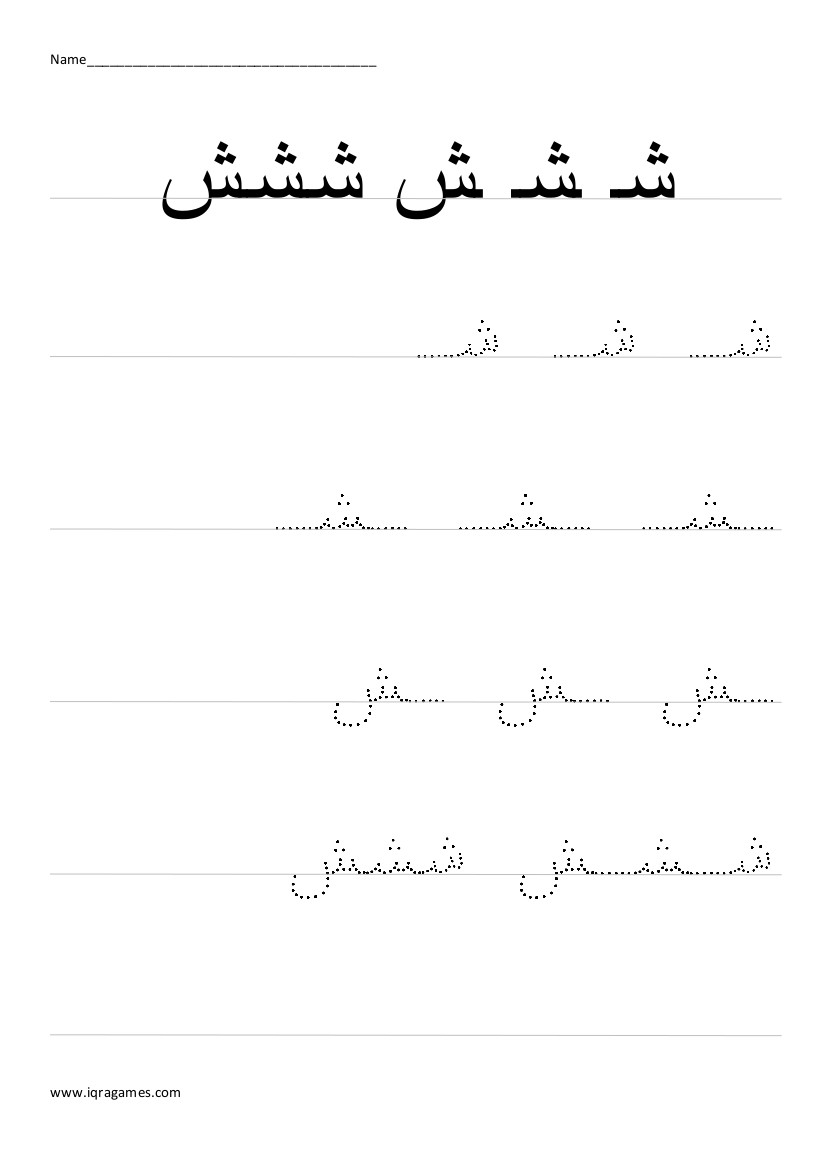 Name______________________________________
شـ ـشـ ـش ششش
شـ شـ شـ
ـشـ ـشـ ـشـ
ـش ـش ـش
شــشــش ششش
www.iqragames.com